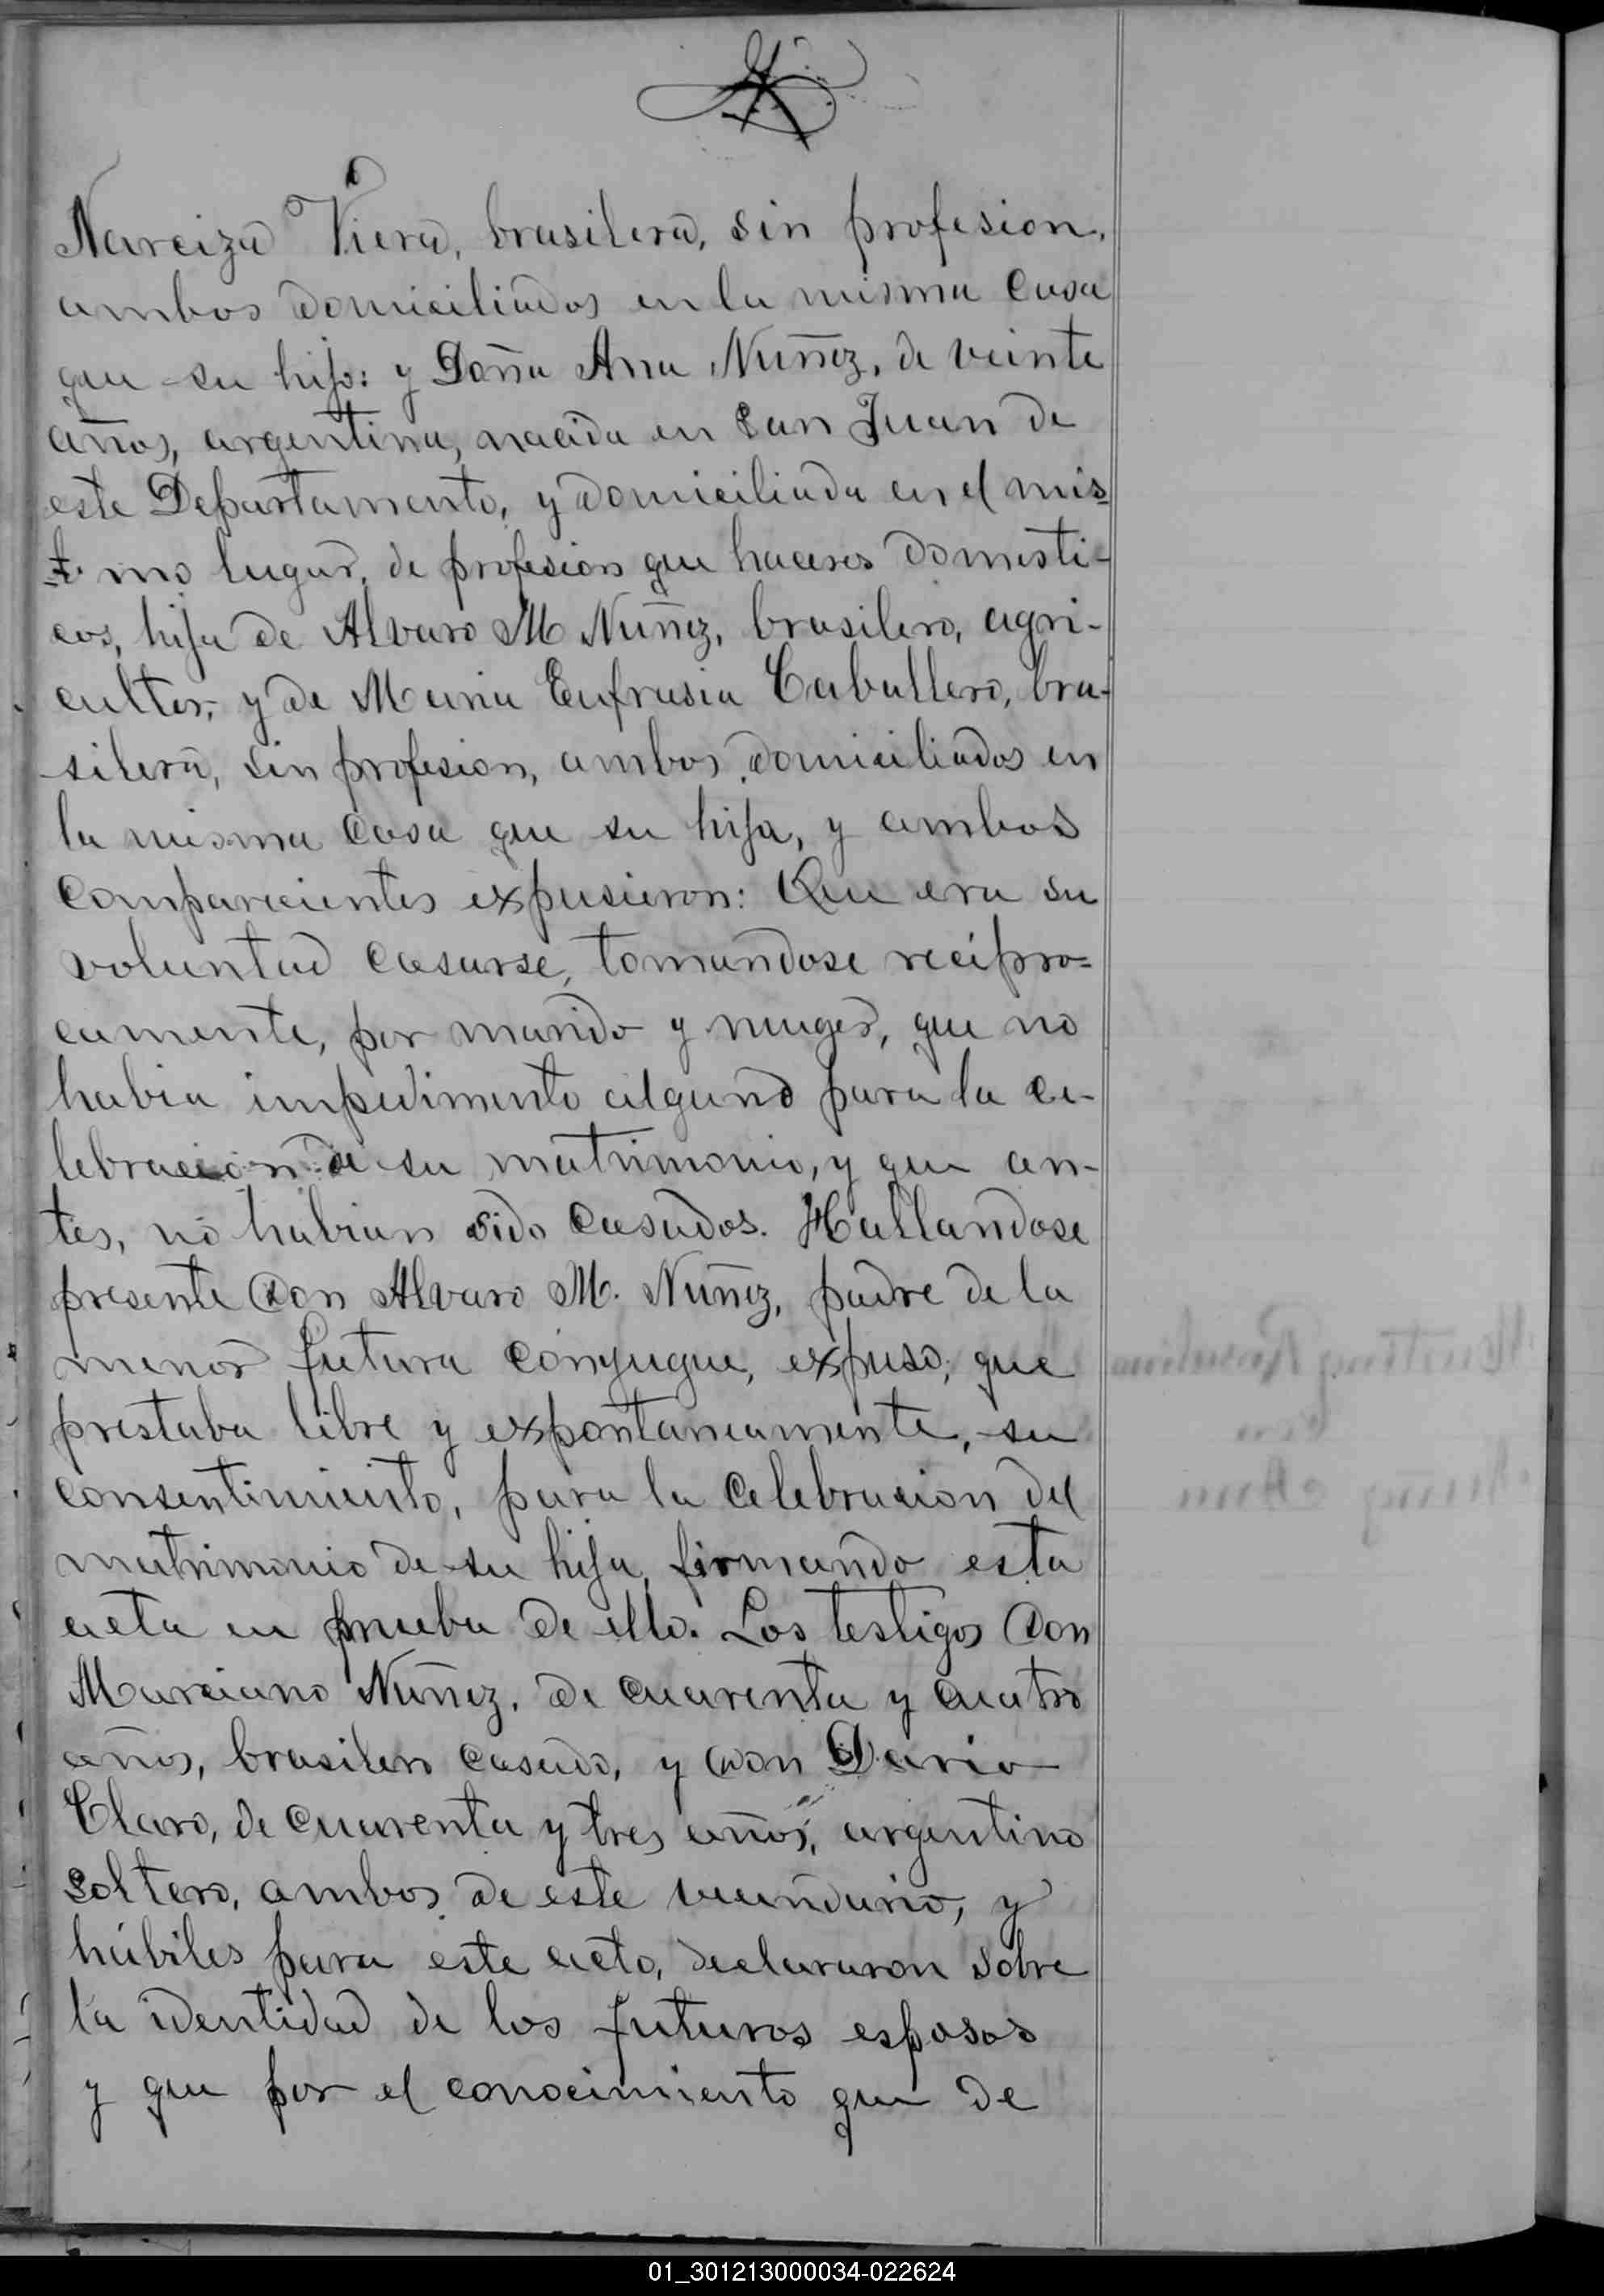 Narciza Viera, brasilera, sin profesion,
ambos domiciliados en la misma casa
que su hijo: y Doña Ana Nuñez, de veinte
años, argentina, nacida en San Juan de
este Departamento, y domiciliada en el mis-
mo lugar, de profesion que haceres domesti-
cos, hija de Alvaro M Nuñez, brasilero, agri-
cultor, y de Maria Eufrasia Caballero, bra-
silera, sin profesion, ambos domiciliados en
la misma casa que su hija, y ambos
comparecientes expusieron: Que era su
voluntad casarse, tomandose recipro=
camente, por marido y muger, que no
habia impedimento alguno para la ce-
lebracion de su matrimonio, y que an-
tes, no habian sido casados. Hallandose
presente Don Alvaro M. Nuñez, padre de la
menor futura conyugue, expuso, que
prestaba libre y expontaneamente, su
consentimiento, para la celebracion del
matrimonio de su hija, firmando esta
acta en prueba de ello. Los testigos Don
Marciano Nuñez, de cuarenta y cuatro
años, brasilero casado, y Don Dario
Claro, de cuarenta y tres años, argentino
soltero, ambos de este vecindario, y
hábiles para este acto, declararon sobre
la identidad de los futuros esposos
y que por el conocimiento que de
01_301213000034-022624